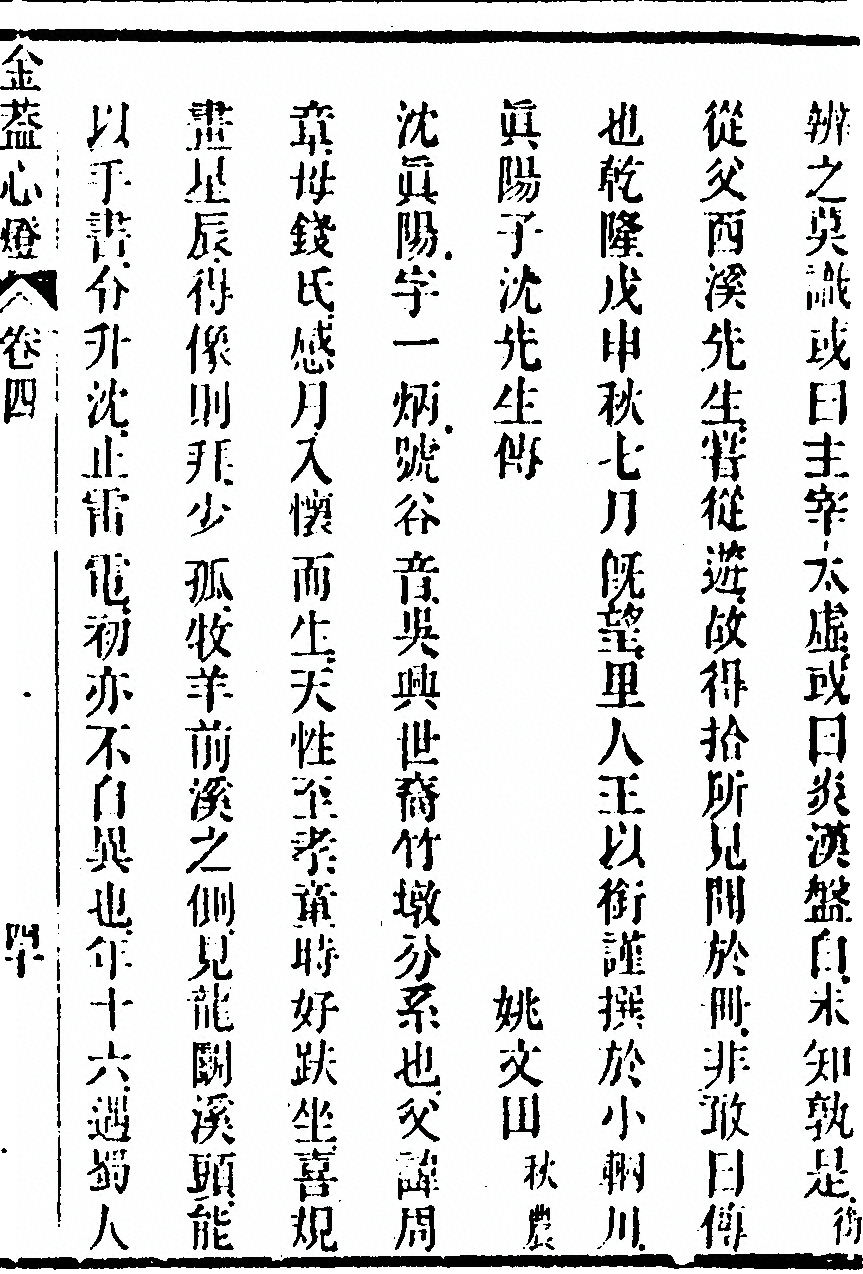 辨之莫識或曰主宰太虛或曰炎漢盤自未知孰是衡
從父西溪先生嘗從遊故得拾所見聞於冊非敢曰傳
也乾隆戊申秋七月既望里人王以銜謹撰於小輞川
眞陽子沈先生傳 姚文田秋農
沈眞陽字一炳號谷音吳興世裔竹墩分系也父諱周
章母錢氏感月入懷而生天性至孝童時好趺坐喜規
畫星辰得像則拜少孤牧羊前溪之側見龍鬬溪頭能
以手書分升沈止雷電初亦不自異也年十六遇蜀人
金蓋心燈 卷四 四十